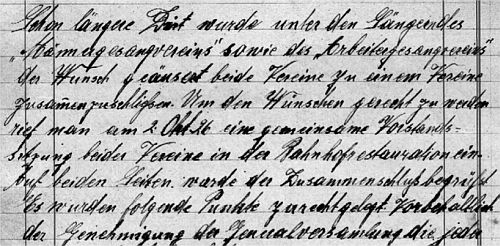 Schon längere Zeit wurde unter den Sängern des
„Männergesangvereins" sowie des „Arbeitergesangvereins"
der Wunsch geäusert beide Vereine zu einem Vereine
zusammenzuschließen. Um den Wünschen gerecht zu werden
rief man am 2. Okt. 26 eine gemeinsame Vorstands-
sitzung beider Vereine in der Bahnhofrestauration ein.
Auf beiden Seiten wurde der Zusammenschluß begrüßt
Es wurden folgende Punkte zurechtgelegt. Vorbehaltlich
der Genehmigung der Generalversamlung die jeder